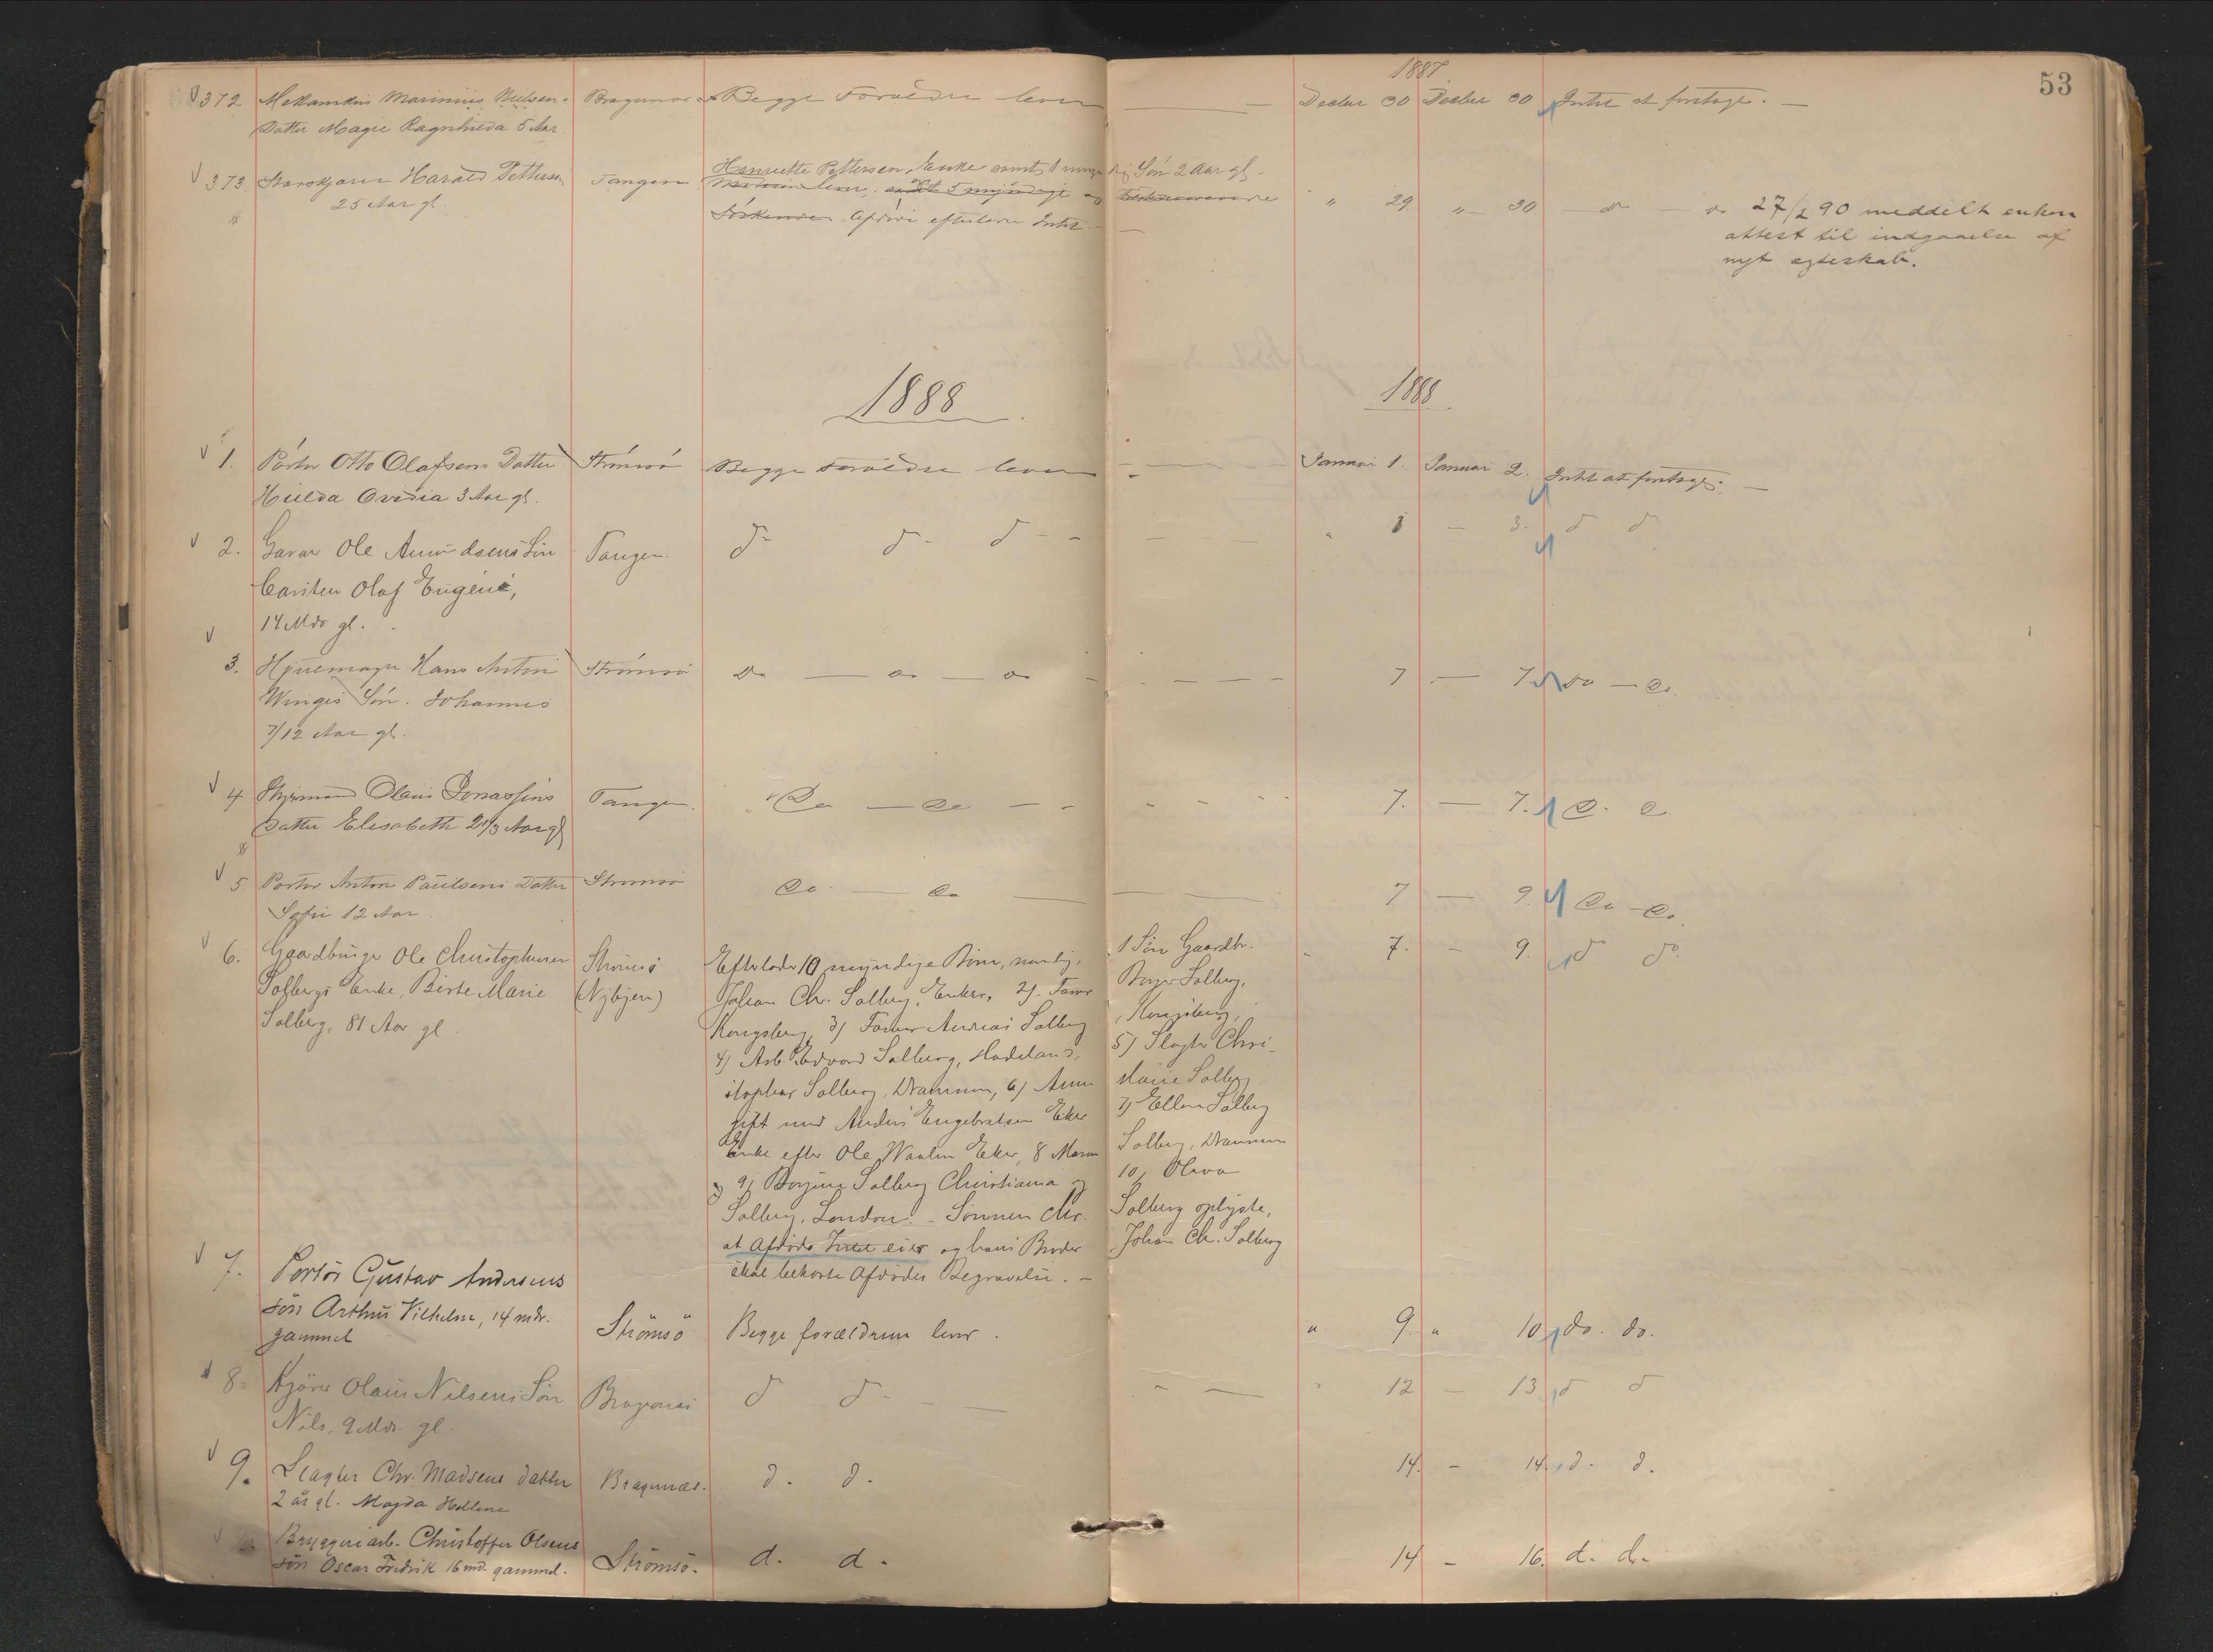 53
1887
372 Mekanikus Marinius Nielsens Bragernæs Begge Forældre lever — Decbr 30 Decbr 30 Intet at foretage. —
Datter Magie Ragnhilda 5 Aar.
373 Harald Pettersen Tangen Henriette Pettersen, Enke samt 1 umyndig Søn 2 Aar gl.
25 Aar gl. lever, 5 myndige og
Søskende. Afdøde efterlader Intet — " 29. " — 30 do — do 27/2 90 meddelt enken
attest til indgaaelse af
nyt ægteskab.
1888 1888
1. Portør Otto Olafsens Datter Strømsø Begge Forældre lever — Januar 1. Januar 2. Intet at foretage. —
Hilda Ovidia 3 Aar gl.
2. Garver Ole Amundsens Søn Tangen. d d d — " 1 — 3. d d
Carsten Olaf Eugene,
14 Mdr gl.
3. Hans Anton Strømsø do — do — do 7 — 7. do — do.
Wingis Søn. Johannes
7/12 Aar gl.
4 Styrmand Olaus Jonassens Tangen. do — do — 7. — 7. do. do
Datter Elisabeth 2 1/3 Aar gl
5. Portør Anton Paulsens Datter Strømsø do — do — 7 — 9. do — do.
Sofie 12 Aar
6. Gaardbruger Ole Christophersen Strømsø Efterlader 10 myndige Børn, nemlig: 1 Søn Gaardbr. " 7. — 9. do do.
Solbergs Enke, Birte Marie (Nybyen) Johan Chr. Solberg, Eker, 2). Farver Borger Solberg,
Solberg, 81 Aar gl. Kongsberg, 3) Farver Andreas Solberg, Kongsberg,
4) Arb. Edvard Solberg, Hadeland, 5) Slagter Chri-
stopher Solberg, Drammen, 6) Anne Marie Solberg
gift med Anders Engebretsen Eker 7) Ellen Solberg
Enke efter Ole Waalen Eker, 8 Maren Solberg, Drammen
og 9) Borgine Solberg Christiania og 10) Olava
Solberg, London. - Sønnen Chr. Solberg oplyste,
at Afdøde Intet eier og hans Broder Johan Ch. Solberg
skal bekoste Afdødes Begravelse. —
7. Portør Gustav Andersens
søn Arthur Vilhelm, 14 mdr.
gammel Strömsö Begge forældrene lever. " 9. " 10 do. do.
8. Kjører Olaus Nilsens Søn Bragernæs d d — 12 — 13. d d
Nils, 9 Mdr. gl
9. Slagter Chr. Madsens datter Bragernæs. d. d. 14. — 14. d. d.
2 år gl. Magda Hellene
10. Bryggeriarb. Christoffer Olsens
søn Oscar Fredrik 16 md. gammel. Strömsö. d. d. 14 — 16. d. d.